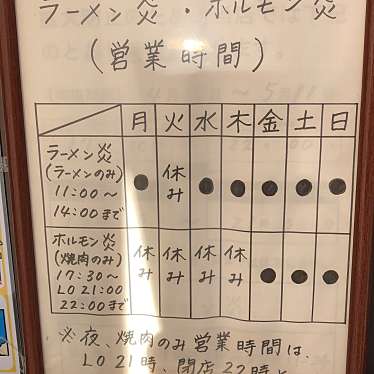 ラーメン炎・ホルモン炎
(営業時間)
月 火 水 木 金 土 日
ラーメン炎
(ラーメンのみ)
11:00〜
14:00まで
● 休み ● ● ● ● ●
ホルモン炎
(焼肉のみ)
17:30〜
LO 21:00
22:00まで
休み 休み 休み 休み ● ● ●
※夜、焼肉のみ営業時間は、
LO 21時、閉店22時と